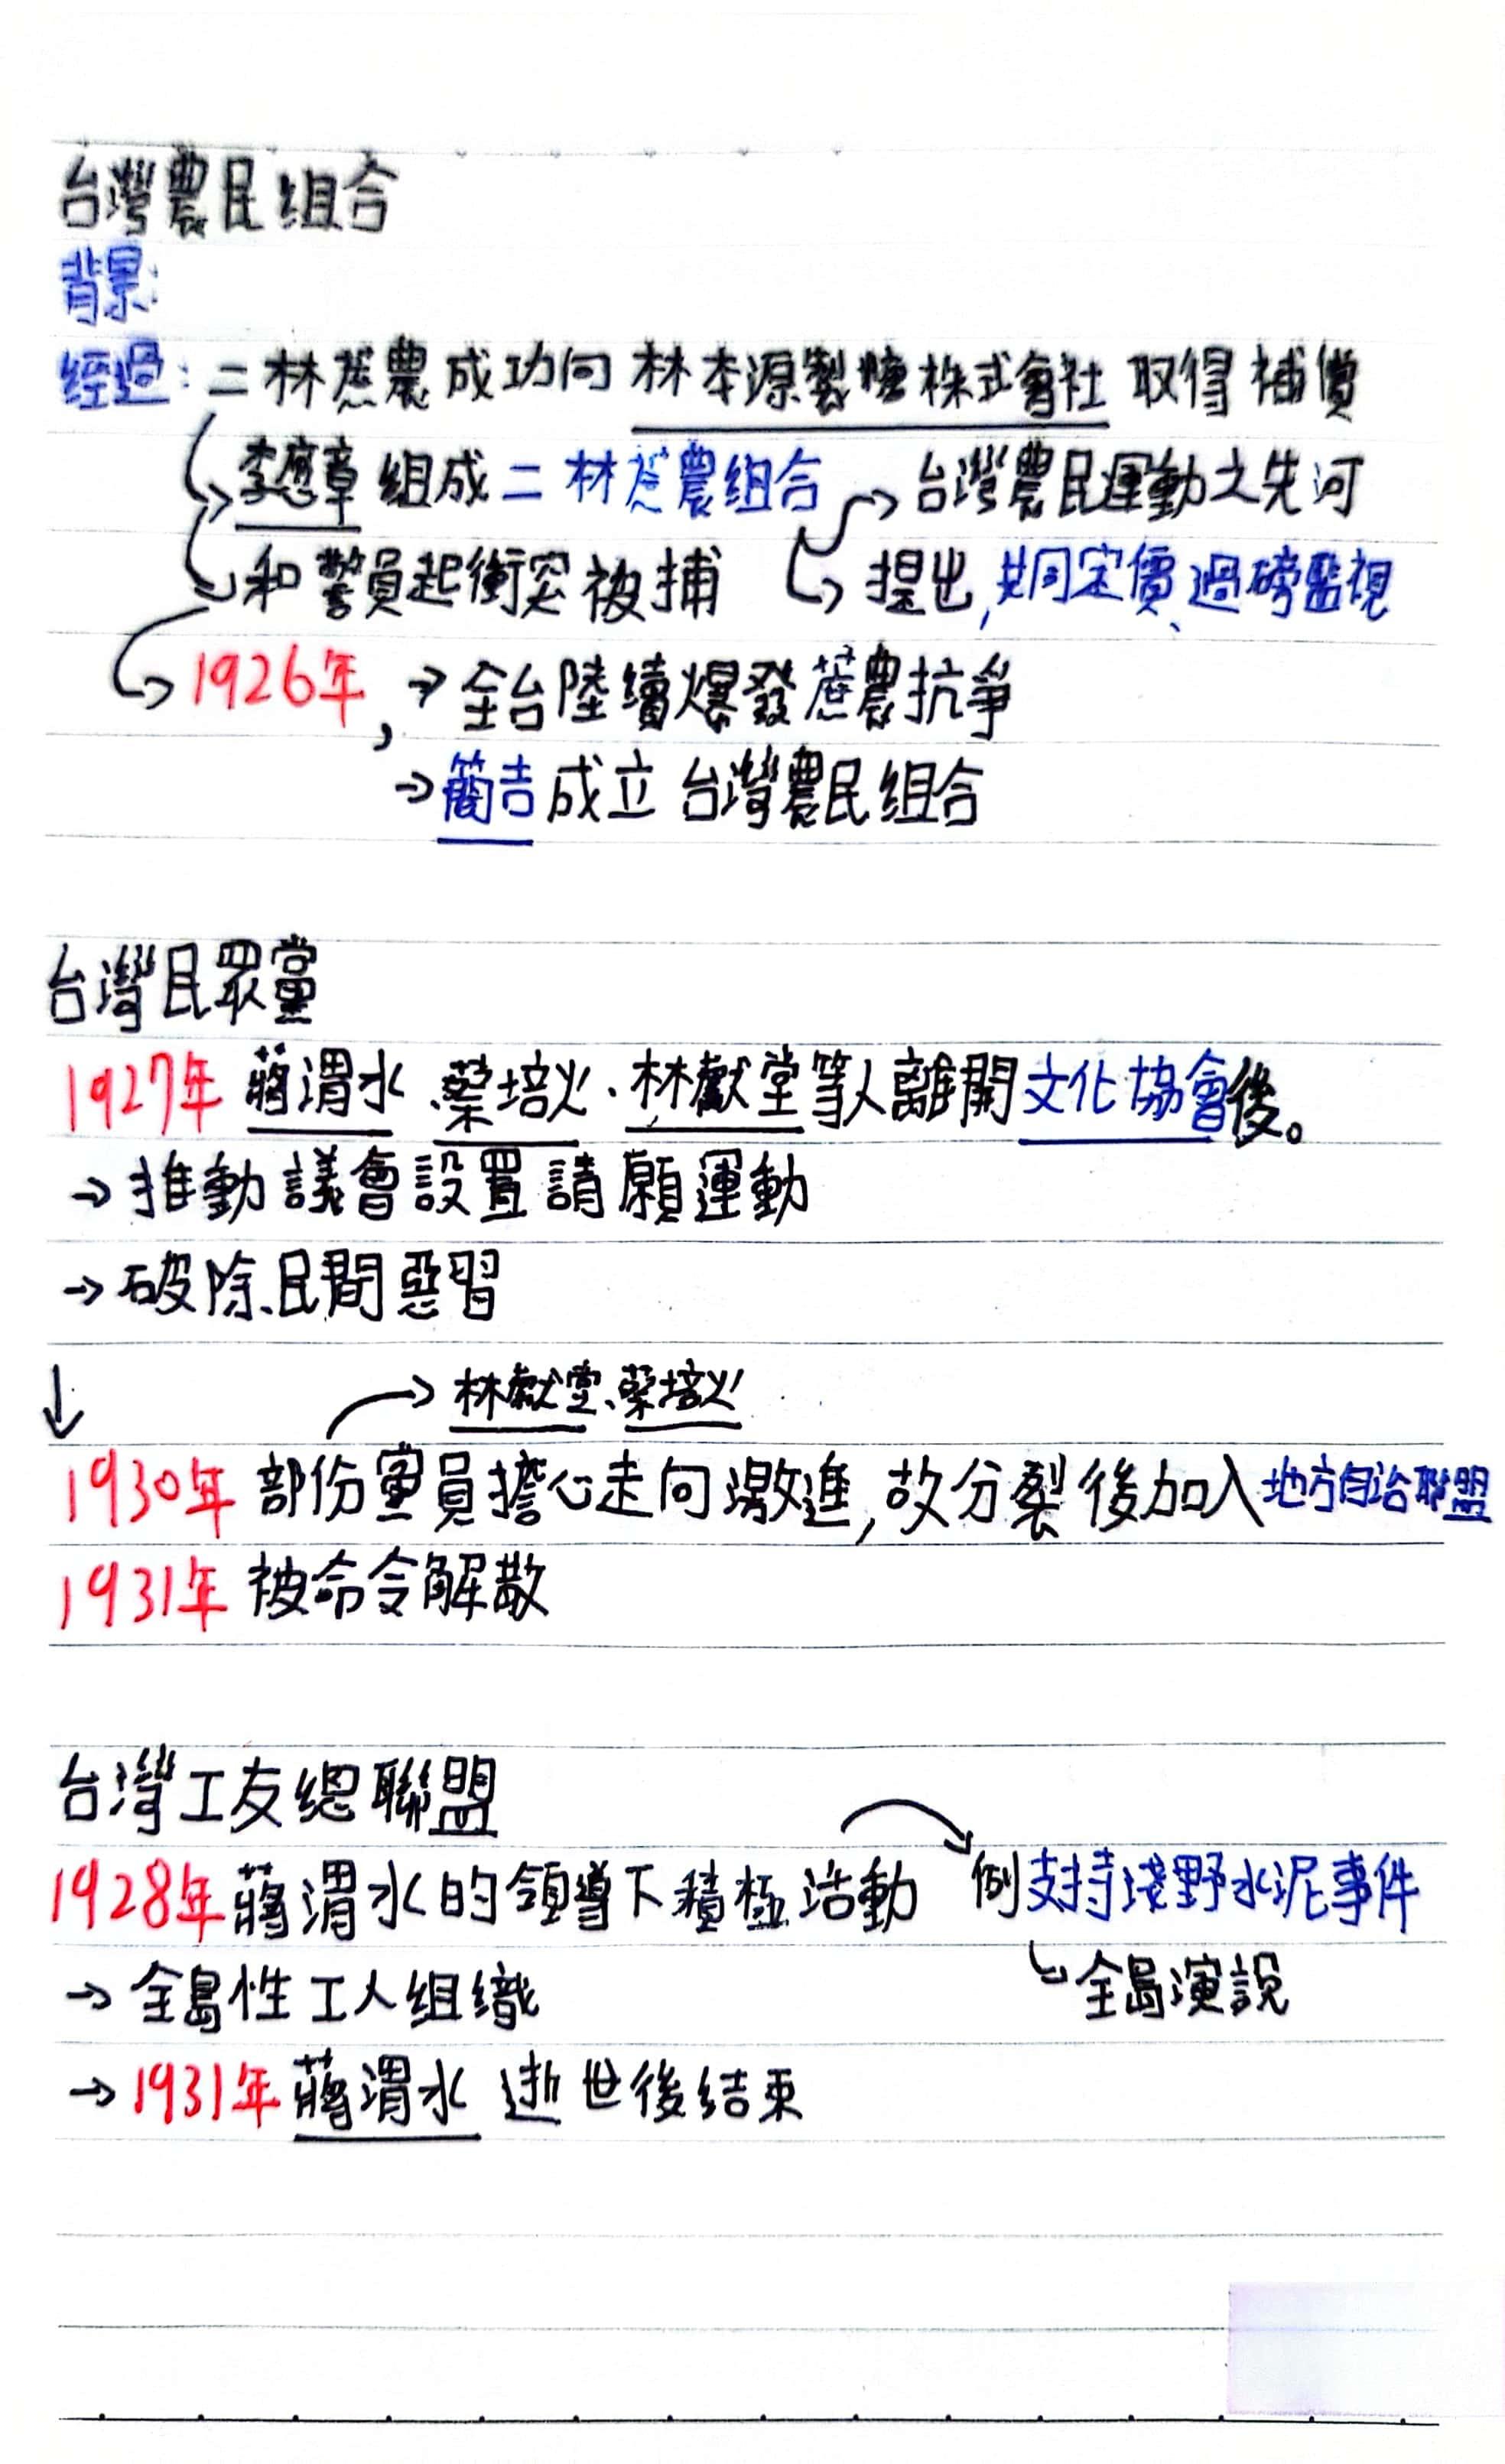 台灣農民组合
背景:
經過:二林蔗農成功向林本源製糖株式會社取得補償
→李應章組成二林蔗農组合→台灣農民運動之先河
→和警員起衝突被捕→提出,共同定價、過磅監視
→1926年,→全台陸續爆發蔗農抗爭
→簡吉成立台灣農民組合
台灣民眾黨
1927年蔣渭水、蔡培火、林獻堂等人離開文化協會後。
→推動議會設置請願運動
→破除民間惡習
↓→林獻堂、蔡培火
1930年部份黨員擔心走向激進,故分裂後加入地方自治聯盟
1931年被命令解散
台灣工友總聯盟
1928年蔣渭水的領導下積極活動→例支持淺野水泥事件
→全島性工人組織→全島演說
→1931年蔣渭水逝世後結束